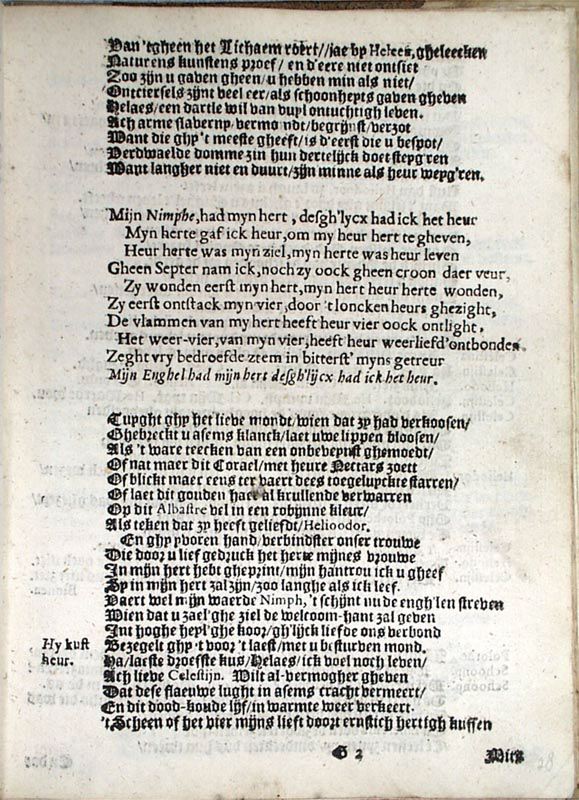 Van 'tgheen het Lichaem roert//jae by Heleen, gheleecken
Naturens kunstens proef/ en d'eere niet ontsiet
Zoo zijn u gaven gheen/u hebben min als niet/
Ontciersels zijnt veel eer/als schoonheyts gaven gheven
Helaes/een dartle wil van vuyl ontuchtigh leven.
Ach arme slaverny/vermo ndt/begrijnst/verzot
Want die ghy 't meeste gheeft/is d'eerst die u bespot/
Verdwaelde domme zin hun dertelijck doet steygren
Want langher niet en duurt/zijn minne als heur weyg'ren.
Mijn Nimphe, had myn hert, desgh'lycx had ick het heur
Myn herte gaf ick heur, om my heur hert te gheven,
Heur herte was myn ziel, myn herte was heur leven
Gheen Septer nam ick, noch zy oock gheen croon daer veur,
Zy wonden eerst myn hert, myn hert heur herte wonden,
Zy eerst ontstack myn vier, door 't loncken heurs ghezight,
De vlammen van my hert heeft heur vier oock ontlight,
Het weer-vier, van myn vier, heeft heur weerliefd' ontbonden
Zeght vry bedroefde ztem in bitterst' myns getreur
Mijn Enghel had mijn hert desgh'lijcx had ick het heur.
Tuyght ghy het lieve mondt/wien dat zy had verkoosen/
Ghebreckt u asems klanck/laet uwe lippen bloosen/
Als 't ware teecken van een onbeveynst ghemoedt/
Of nat maer dit Corael/met heure Nectars zoett
Of blickt maer eens ter baert dees toegeluyckte starren/
Of laet dit gouden haer al krullende verwarren
Op dit Albastre vel in een robijnne kleur/
Als teken dat zy heeft geliefdt/Helioodor.
En ghy yvoren hand/verbindster onser trouwe
Die door u lief gedruck het herte mijnes vrouwe
In mijn hert hebt gheprint/mijn hantrou ick u gheef
Gy in mijn hert zal zijn/zoo langhe als ick leef.
Vaert wel mijn waerde Nimph, 't schijnt nu de engh'len streven
Wien dat u zael'ghe ziel de welcoom-hant zal geven
Int hoghe heyl'ghe koor/gh'lijck lief de ons verbond
Hy kust heur.
Bezegelt ghy 't voor 't laest/met u besturven mond.
Ha/laetste droefste kus/Helaes/ick voel noch leven/
Ach lieve Celestijn. Wilt al-vermogher gheven
Dat dese flaeuwe lught in asems cracht vermeert/
En dit dood-koude lijf/in warmte weer verkeert.
't Scheen of het vier mijns lieft doort ernstich hertigh kussen
G 2